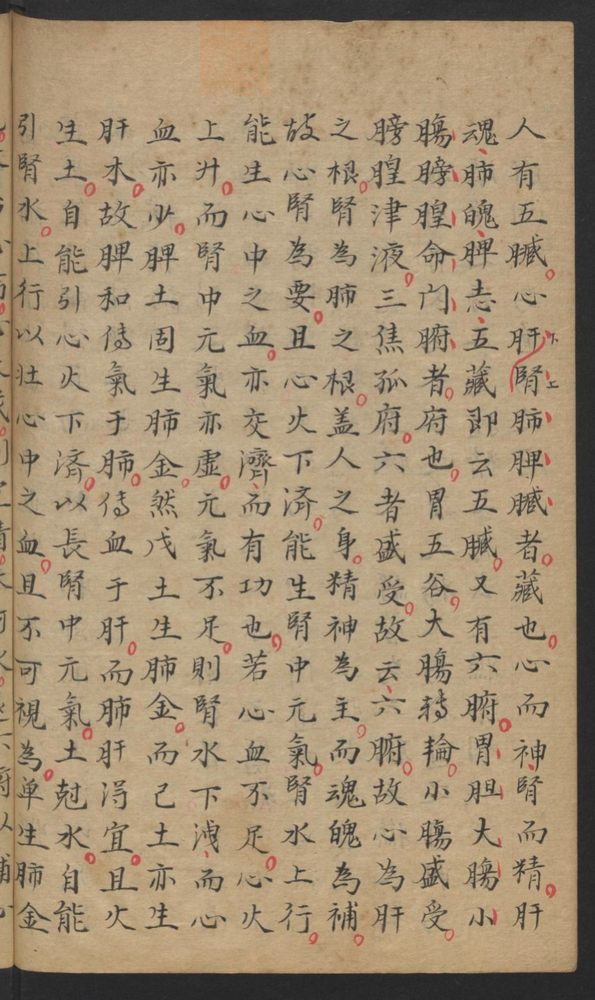 人有五臟心肝腎肺脾臟者藏也心而神腎而精肝
魂肺魄脾志五藏即云五臟又有六腑胃胆大腸小
腸膀胱命门腑者府也胃五谷大腸轉輪小腸盛受
膀胱津液三焦孤府六者盛受故云六腑故心為肝
之根腎為肺之根盖人之身精神為主而魂魄為補
故心腎為要且心火下済能生腎中元氣腎水上行
能生心中之血亦交濟而有功也若心血不足心火
上升而腎中元氣亦虛元氣不足則腎水下洩而心
血亦少脾土固生肺金然戊土生肺金而己土亦生
肝木故脾和傳氣于肺傳血于肝而肺肝得宜且火
生土自能引心火下済以長腎中元氣土尅水自能
引腎水上行以壯心中之血且不可視為单生肺金